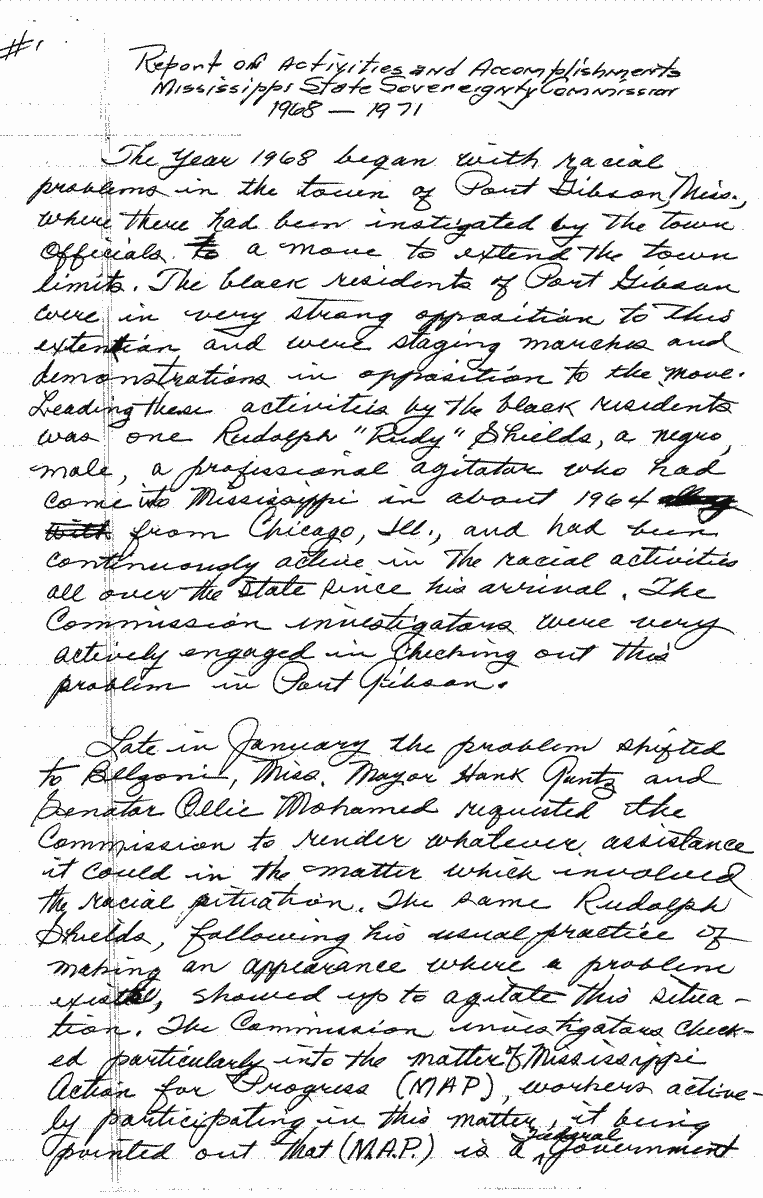 #1
Report on Activities and Accomplishments
Mississippi State Sovereignty Commission
1968 — 1971
The Year 1968 began with racial
problems in the town of Port Gibson, Miss.,
where there had been instigated by the town
officials to a move to extend the town
limits. The black residents of Port Gibson
were in very strong opposition to this
extention and were staging marches and
demonstrations in opposition to the move.
Leading these activities by the black residents
was one Rudolph "Rudy" Shields, a negro,
male, a professional agitator who had
come into Mississippi in about 1964 along
with from Chicago, Ill., and had been
continuously active in the racial activities
all over the State since his arrival. The
Commission investigators were very
actively engaged in checking out this
problem in Port Gibson.
Late in January the problem shifted
to Belzoni, Miss. Mayor Hank Gantz and
Senator Ollie Mohamed requested the
Commission to render whatever assistance
it could in the matter which involved
the racial situation. The same Rudolph
Shields, following his usual practice of
making an appearance where a problem
existed, showed up to agitate this situa-
tion. The Commission investigators check-
ed particularly into the matter of Mississippi
Action for Progress (MAP), workers active-
ly participating in this matter, it being
pointed out that (M.A.P.) is a Federal Government